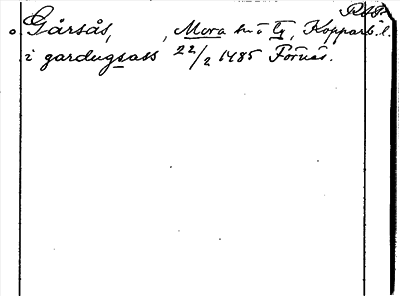 Gårsås, , Mora sn o tg, Kopparb. l.
i gardugsass 22/2 1485 Fornäs.